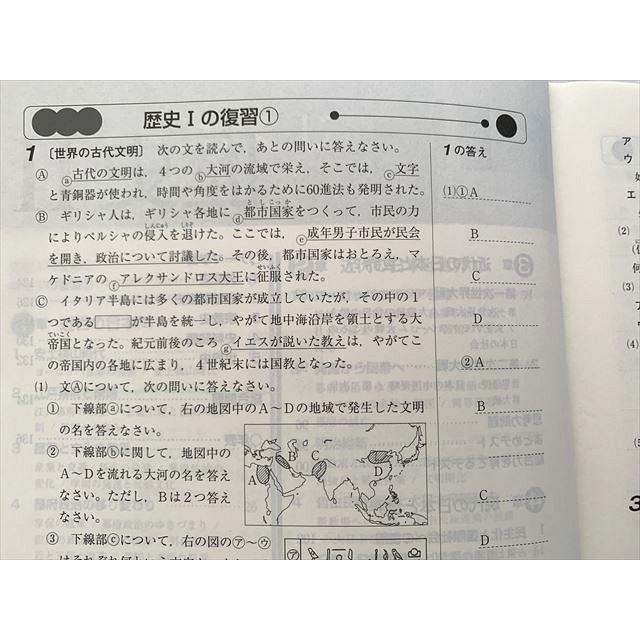 歴史Ⅰの復習①
1 〔世界の古代文明〕 次の文を読んで，あとの問いに答えなさい。
Ⓐ ⓐ古代の文明は，4つのⓑ大河の流域で栄え，そこでは，ⓒ文字
と青銅器が使われ，時間や角度をはかるために60進法も発明された。
Ⓑ ギリシャ人は，ギリシャ各地にⓓ都市国家をつくって，市民の力
によりペルシャの侵入を退けた。ここでは，ⓔ成年男子市民が民会
を開き，政治について討議した。その後，都市国家はおとろえ，マ
ケドニアのⓕアレクサンドロス大王に征服された。
Ⓒ イタリア半島には多くの都市国家が成立していたが，その中の1
つである が半島を統一し，やがて地中海沿岸を領土とする大
帝国となった。紀元前後のころⓖイエスが説いた教えは，やがてこ
の帝国内の各地に広まり，4世紀末には国教となった。
(1) 文Ⓐについて，次の問いに答えなさい。
① 下線部ⓐについて，右の地図中のA～Dの地域で発生した文明
の名を答えなさい。
② 下線部ⓑに関して，地図中の
A～Dを流れる大河の名を答え
なさい。ただし，Bは2つ答え
なさい。
③ 下線部ⓒについて，右の図の㋐～㋒
A
B
C
D
㋐
1の答え
(1)①A
B
C
D
②A
B
C
D
ア
ウ
エ
(2)
(3)
(4)
3